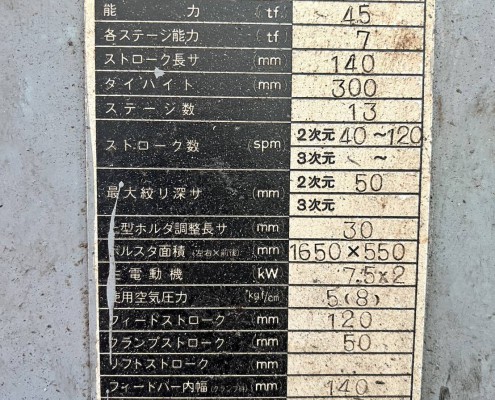 能力 (tf) 45
各ステージ能力 (tf) 7
ストローク長サ (mm) 140
ダイハイト (mm) 300
ステージ数 13
ストローク数 (spm) 2次元 40~120
3次元 ~
最大絞リ深サ (mm) 2次元 50
3次元
型ホルダ調整長サ mm 30
ボルスタ面積 (左右×前後) mm 1650×550
主電動機 kW 7.5×2
使用空気圧力 kgf/cm 5(8)
フィードストローク mm 120
クランプストローク mm 50
リフトストローク mm
フィードバー内幅 (クランプ時) mm 140